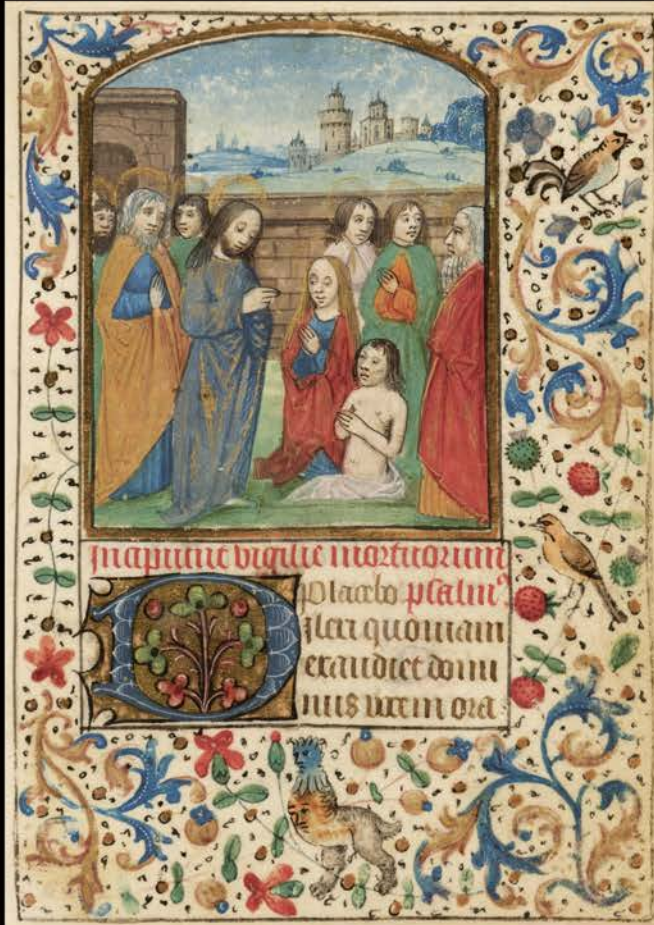 Incipiunt vigilie mortuorum
Placebo psalmꝰ
Dilexi quoniam
exaudiet domi
nus vocem ora